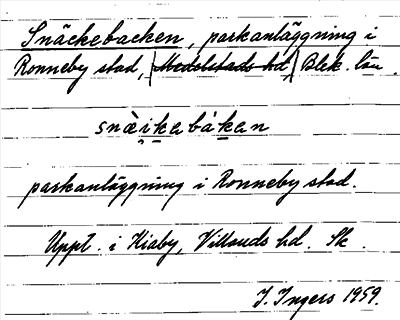 Snäckebacken, parkanläggning i
Ronneby stad, (Medelstads hd) Blek. län.
snàikabákan
parkanläggning i Ronneby stad.
Uppt. i Kiaby, Villands hd. Sk.
I. Ingers 1959.